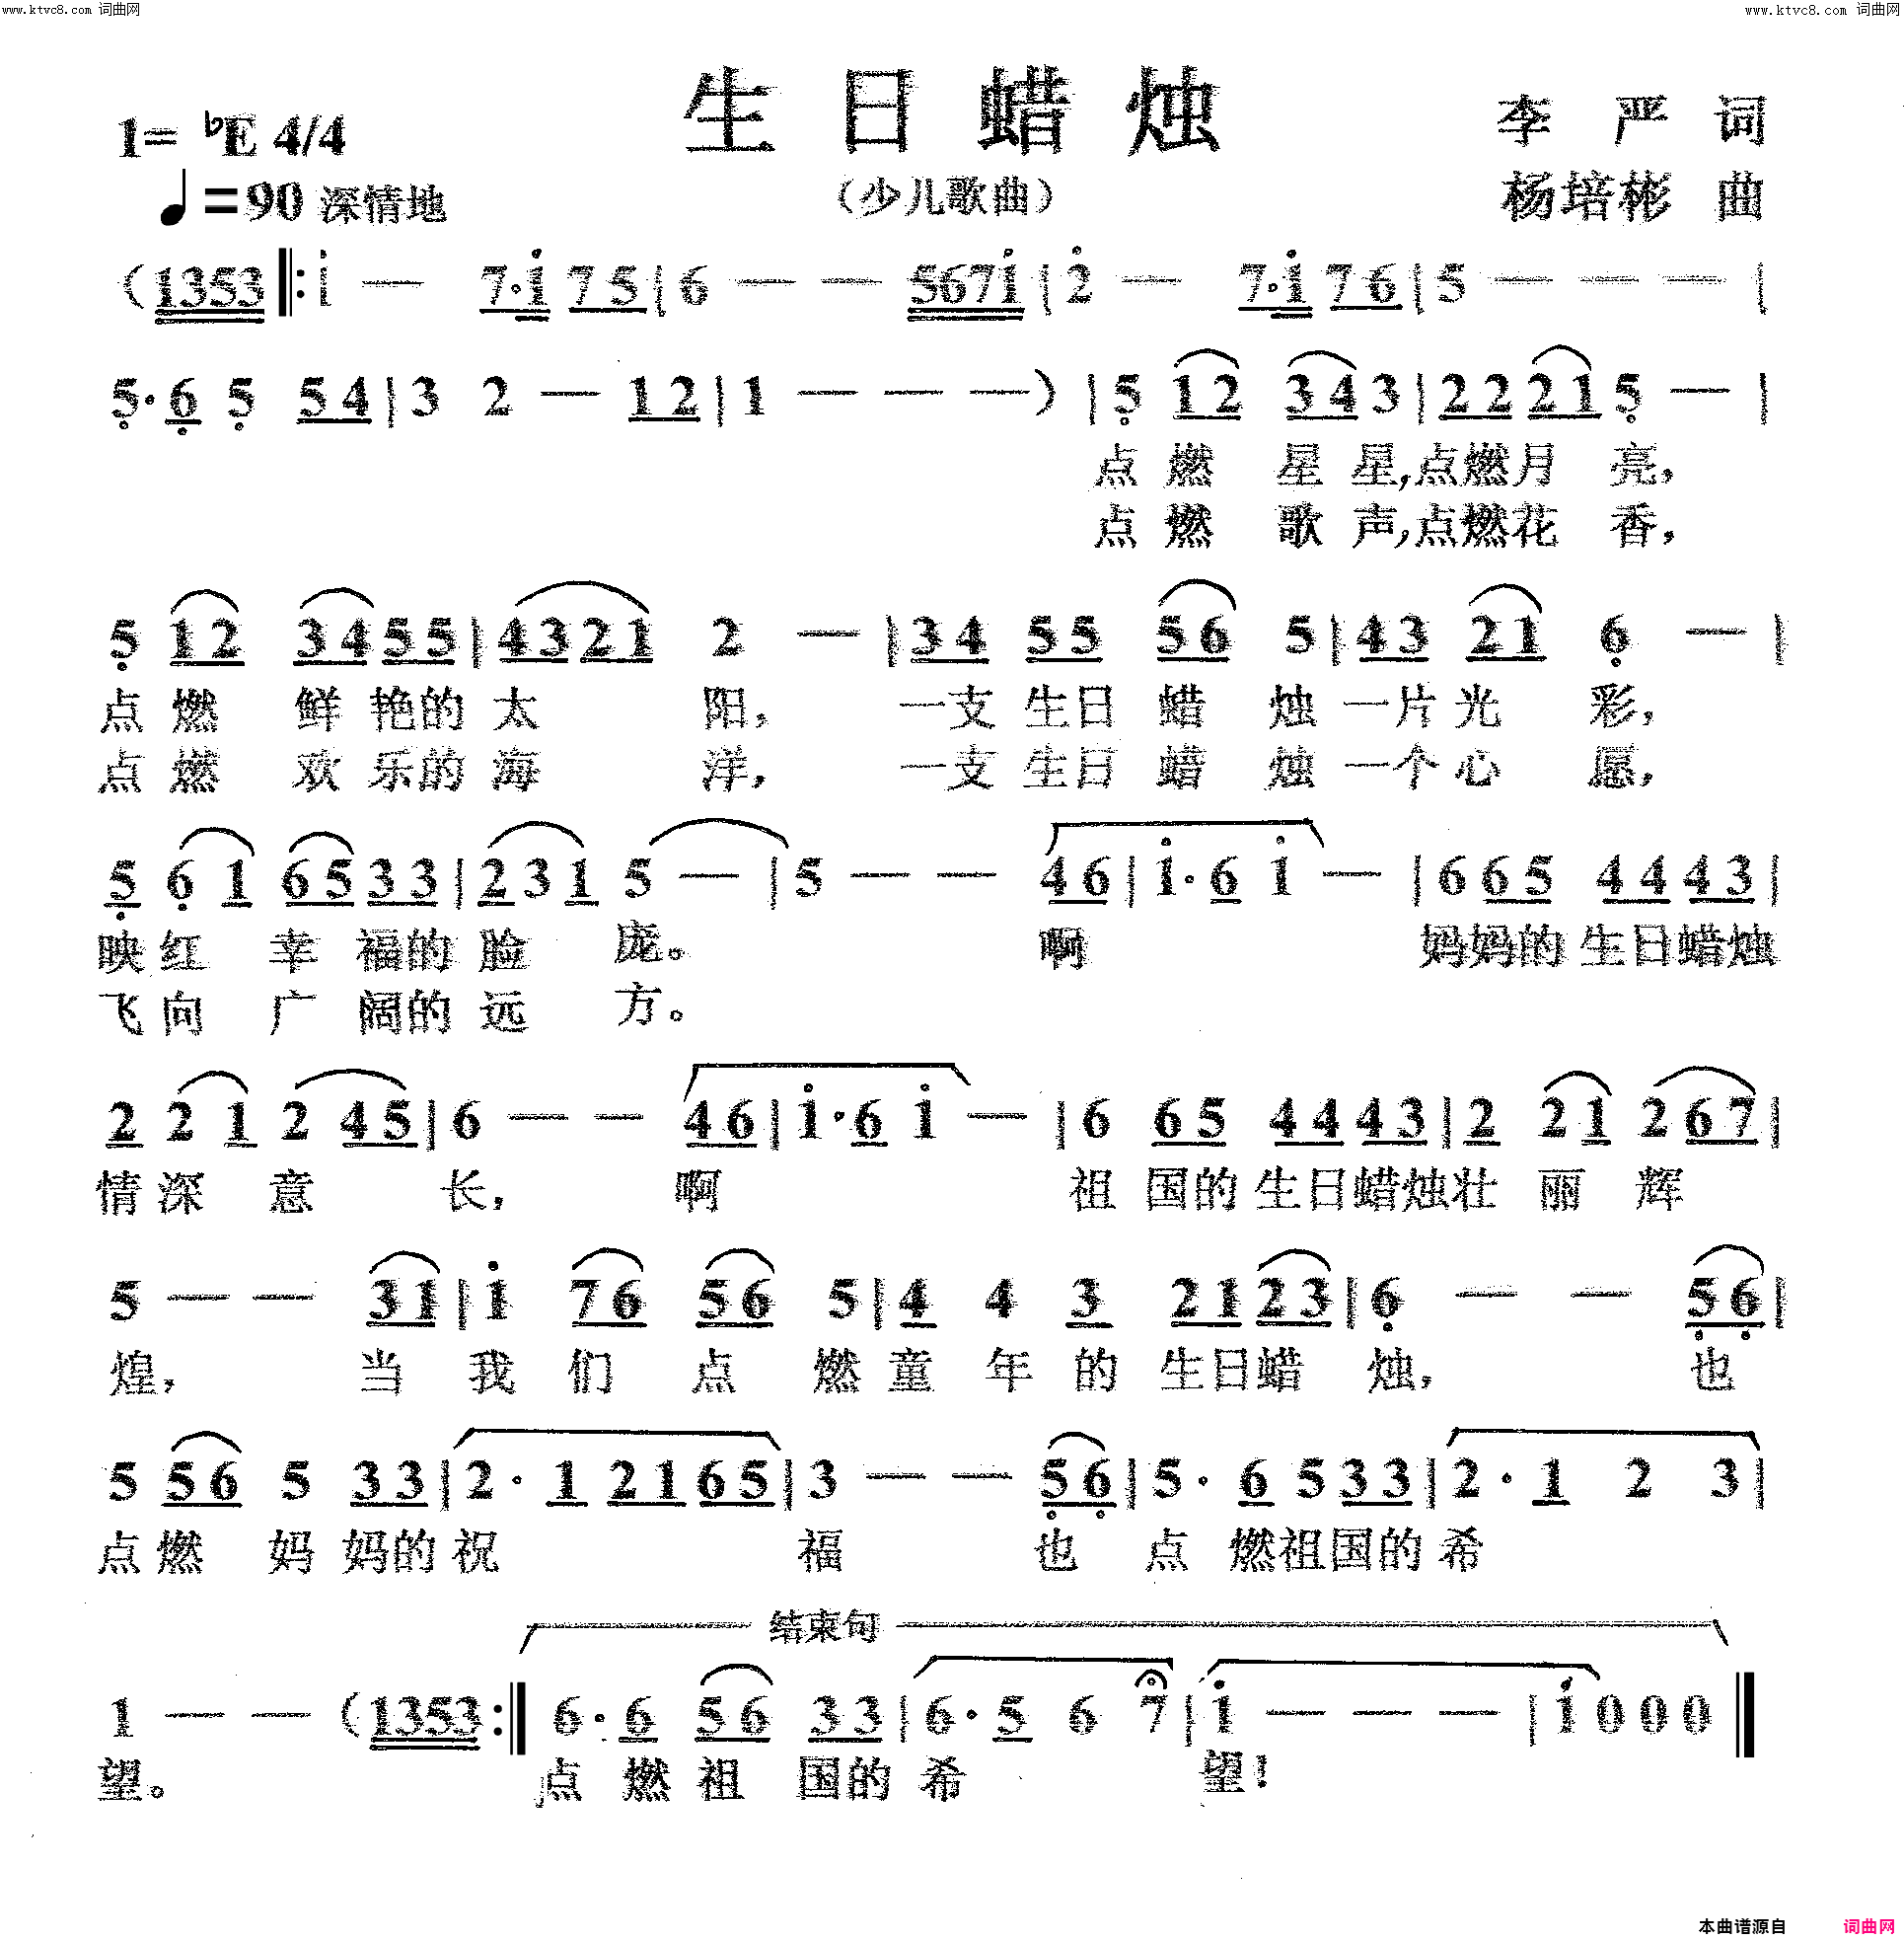 www.ktvc8.com 词曲网 www.ktvc8.com 词曲网
生日蜡烛
1= ♭E 4/4 李 严 词
♩=90 深情地 （少儿歌曲） 杨培彬 曲
(1353 ‖: i — 7·i 75 | 6 — — 567i | 2 — 7·i 76 | 5 — — — |
5·6 5 54 | 3 2 — 12 | 1 — — —) | 5 12 34 3 | 22 21 5 — |
点 燃 星 星,点燃月 亮,
点 燃 歌 声,点燃花 香,
5 12 34 55 | 43 21 2 — | 34 55 56 5 | 43 21 6 — |
点 燃 鲜 艳的 太 阳, 一支 生日 蜡 烛 一片 光 彩,
点 燃 欢 乐的 海 洋, 一支 生日 蜡 烛 一个 心 愿,
5 6 1 65 33 | 2 3 1 5 — | 5 — — 46 | i·6 i — | 6 65 44 43 |
映 红 幸 福的 脸 庞。 啊 妈妈的 生日蜡烛
飞 向 广 阔的 远 方。
2 2 1 2 45 | 6 — — 46 | i·6 i — | 6 65 44 43 | 2 2 1 2 67 |
情 深 意 长, 啊 祖 国的 生日蜡烛壮 丽 辉
5 — — 31 | i 76 56 5 | 4 4 3 21 23 | 6 — — 56 |
煌, 当 我 们 点 燃 童 年 的 生日蜡 烛, 也
5 56 5 33 | 2·1 21 65 | 3 — — 56 | 5·6 5 33 | 2·1 2 3 |
点 燃 妈 妈的 祝 福 也 点 燃祖国的 希
结束句
1 — — (1353 :‖ 6·6 56 33 | 6·5 6 7 | i — — — | i 0 0 0 ‖
望。 点 燃 祖 国的 希 望！
本曲谱源自 词曲网